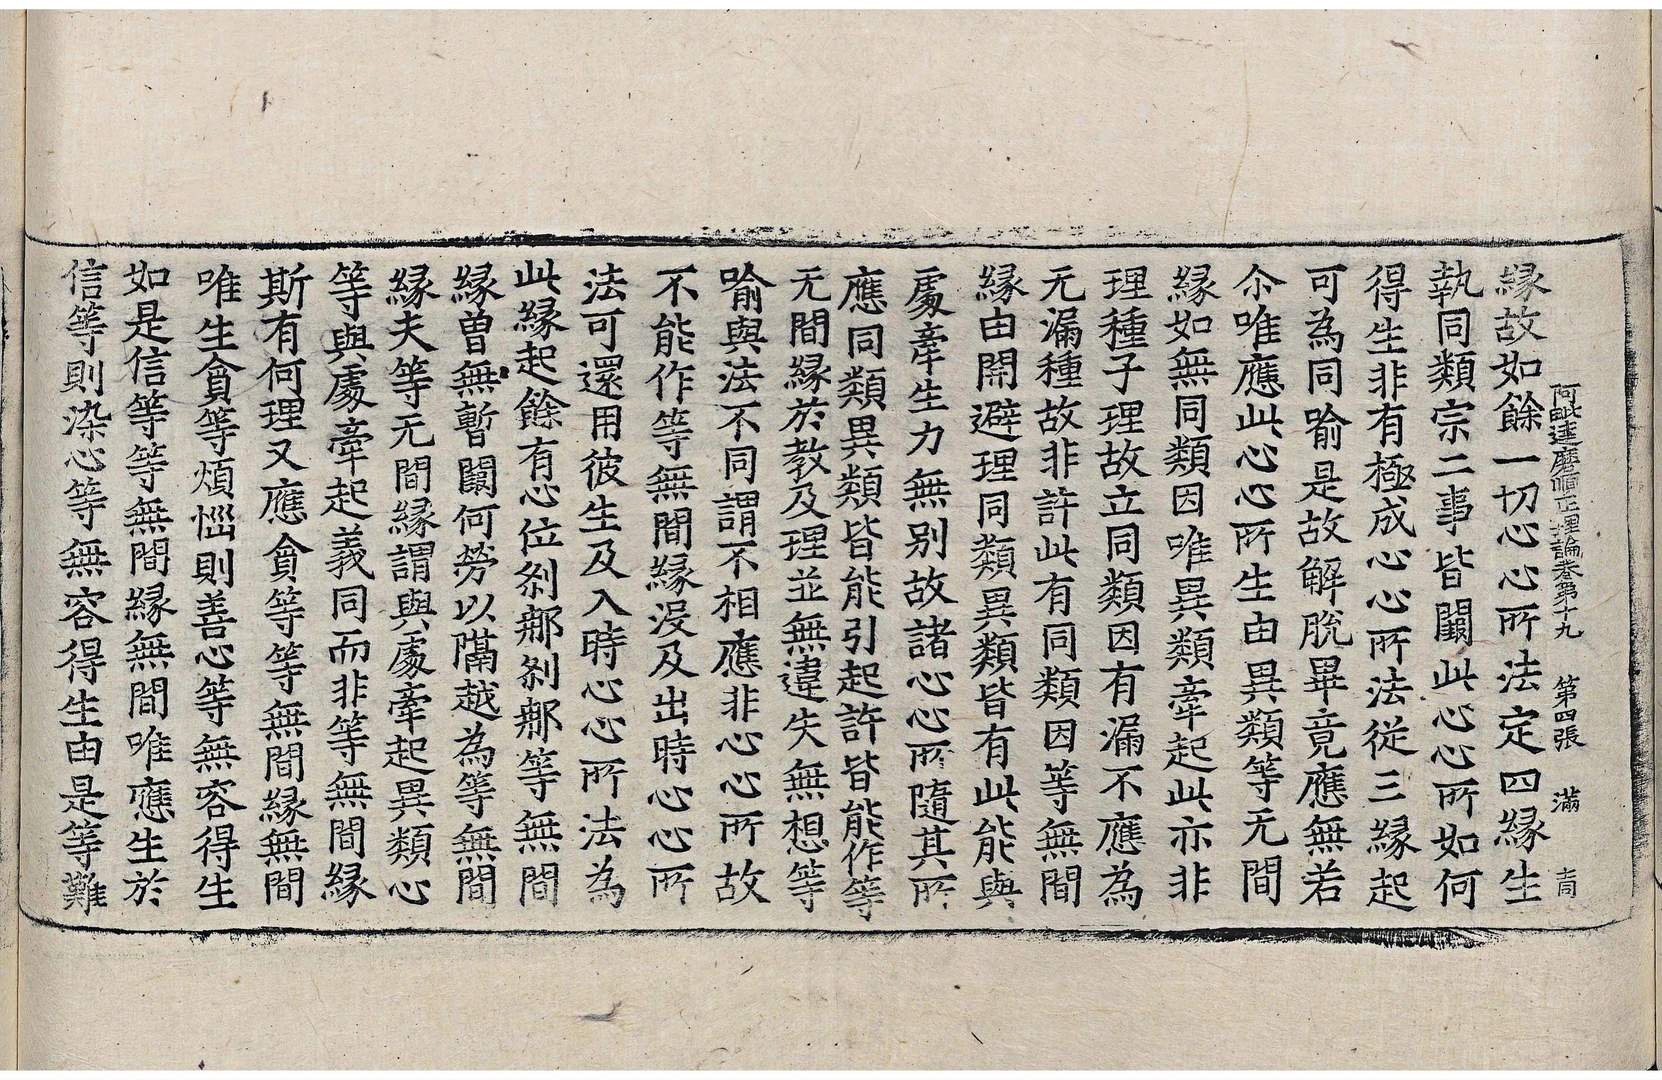 阿毗達磨順正理論卷第十九 第四張 滿
縁故如餘一切心心所法定四縁生
執同類宗二事皆闕此心心所如何
得生非有極成心心所法從三縁起
可為同喻是故解脫畢竟應無若
尒唯應此心心所生由異類等无間
縁如無同類因唯異類牽起此亦非
理種子理故立同類因有漏不應為
无漏種故非許此有同類因等無間
縁由開避理同類異類皆有此能與
處牽生力無別故諸心心所隨其所
應同類異類皆能引起許皆能作等
无間縁於教及理並無違失無想等
喻與法不同謂不相應非心心所故
不能作等無間縁没及出時心心所
法可還用彼生及入時心心所法為
此縁起餘有心位剎那剎那等無間
縁曽無暫闕何勞以隔越為等無間
縁夫等无間縁謂與處牽起異類心
等與處牽起義同而非等無間縁
斯有何理又應貪等等無間縁無間
唯生貪等煩惱則善心等無容得生
如是信等等無間縁無間唯應生於
信等則染心等無容得生由是等難